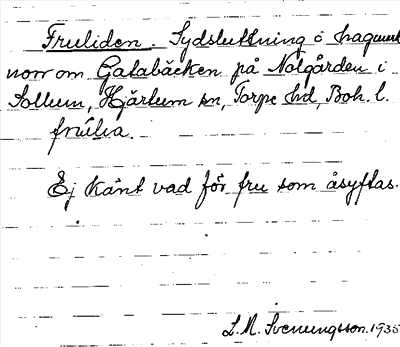 Fruliden. Sydsluttning o hagmark
norr om Gatabäcken på Nolgården i
Sollum, Hjärtum sn, Torpe hd, Boh. l.
frúlia.
Ej känt vad för fru som åsyftas.
L.M. Svenungsson. 1935